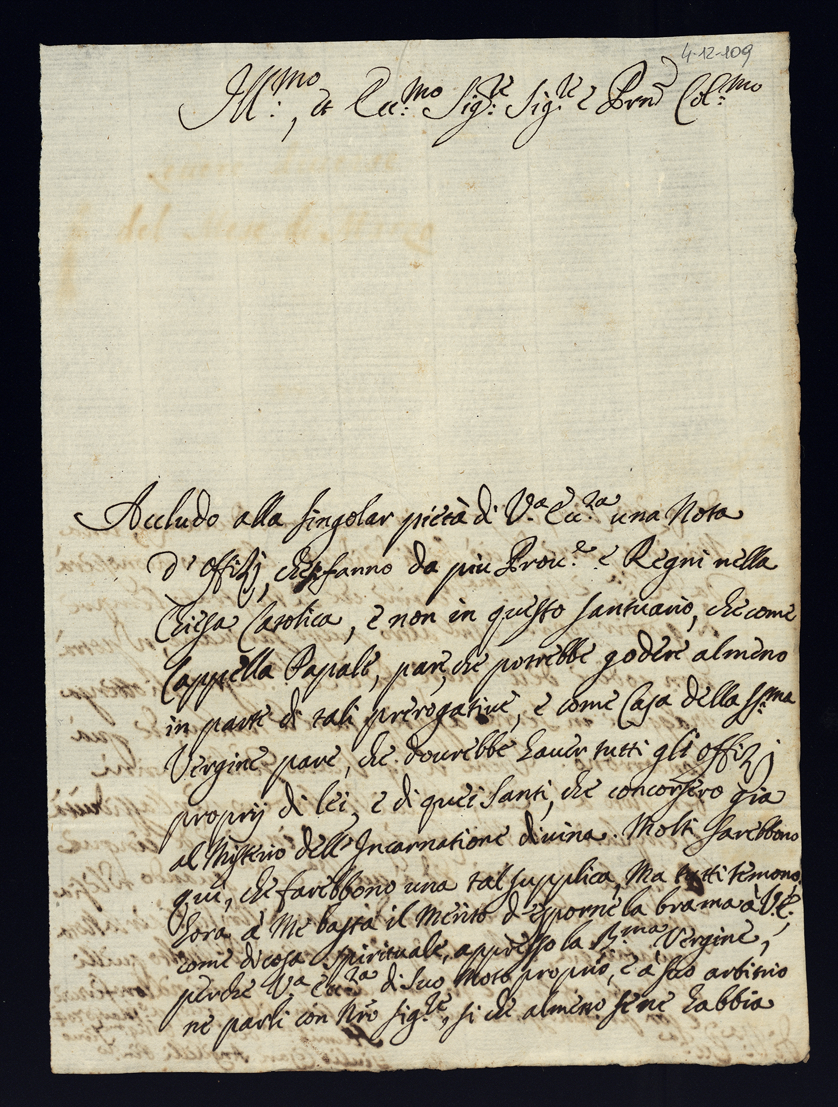 4-12-109
Ill:mo, et Ecc:mo Sig:re Sig:re e Prnẽ Col:mo
Accludo alla singolar pietà di V.a Ecc:za una Nota
d'Offizij, che si fanno da più Prou:e e Regni nella
Chiesa Catolica, e non in questo santuario, che come
Cappella Papale, pare, che potrebbe godere almeno
in parte di tali prerogative, e come Casa della Ss:ma
Vergine pare, che dourebbe hauer tutti gli offizij
proprij di lei, e di quei Santi, che concorsero già
al Misterio dell'Incarnatione divina. Molti sarebbono
qui, che farebbono una tal supplica, Ma tutti temono.
hora à Me basta il Merito d'esporne la brama à V.E.
come di cosa spirituale, appresso la B:ma Vergine,
perche V.a Ecc:za di suo Moto proprio, e à suo arbitrio
ne parli con Nrõ Sig:re, si che almeno se ne habbia